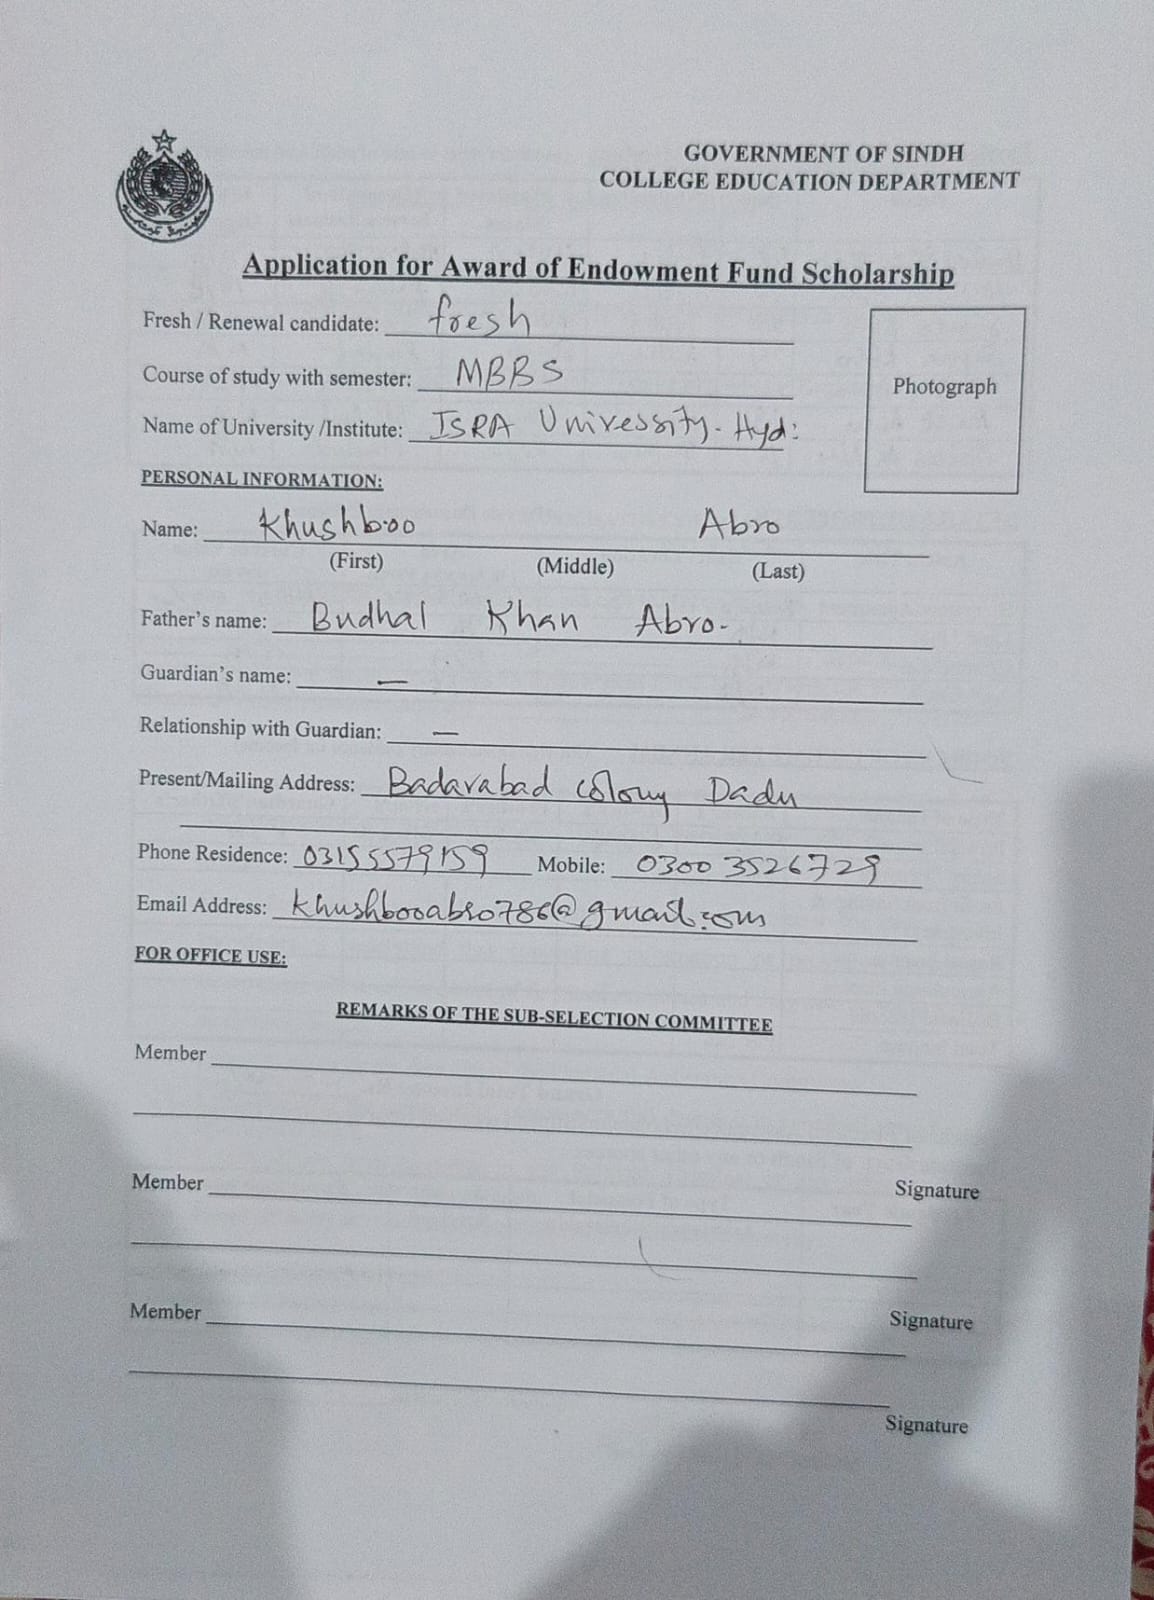 GOVERNMENT OF SINDH
COLLEGE EDUCATION DEPARTMENT
Application for Award of Endowment Fund Scholarship
Fresh / Renewal candidate: fresh
Course of study with semester: MBBS
Photograph
Name of University /Institute: ISRA Univessity- Hyd:
PERSONAL INFORMATION:
Name: Khushboo Abro
(First) (Middle) (Last)
Father's name: Budhal Khan Abro-
Guardian's name: —
Relationship with Guardian: —
Present/Mailing Address: Badarabad colony Dadu
Phone Residence: 03155579159 Mobile: 0300 3526729
Email Address: khushbooabro786@gmail.com
FOR OFFICE USE:
REMARKS OF THE SUB-SELECTION COMMITTEE
Member
Member
Signature
Member
Signature
Signature